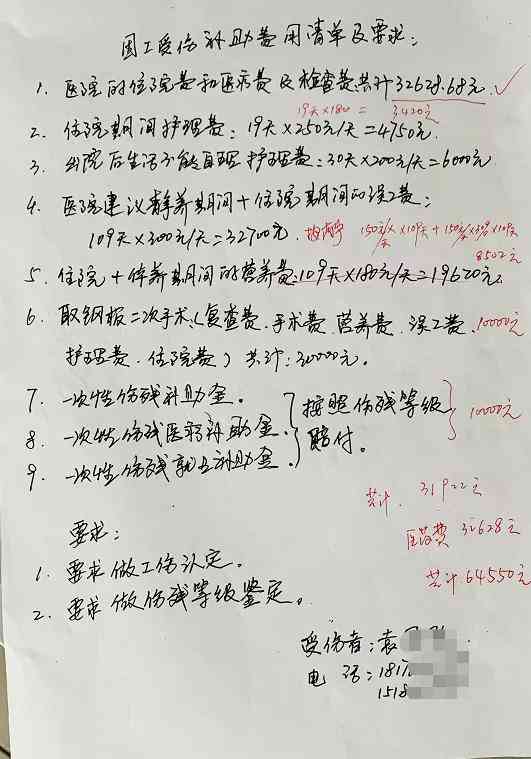 因工受伤补助费用清单及要求:
1. 医院的住院费和医疗费及检查费共计32628.68元 ✓
19天×180 = 3420元
2. 住院期间护理费: 19天×250元/天=4750元.
3. 出院后生活不能自理护理费: 30天×200元/天=6000元
4. 医院建议静养期间+住院期间的误工费:
109天×300元/天=32700元.
150元/天×109天+150元/天
8502元
5. 住院+停养期间的营养费: 109天×180元/天=19620元
6. 取钢板二次手术(复查费、手术费、营养费、误工费、 10000元
护理费、住院费)共计: 30000元.
7. 一次性伤残补助金.
8. 一次性伤残医药补助金. 按照伤残等级 10000元
9. 一次性伤残就业补助金. 赔付.
共计. 31922元
医药费 32628元
共计64550元
要求:
1. 要求做工伤认定.
2. 要求做伤残等级鉴定.
受伤者: 袁
电 话: 1817
1518